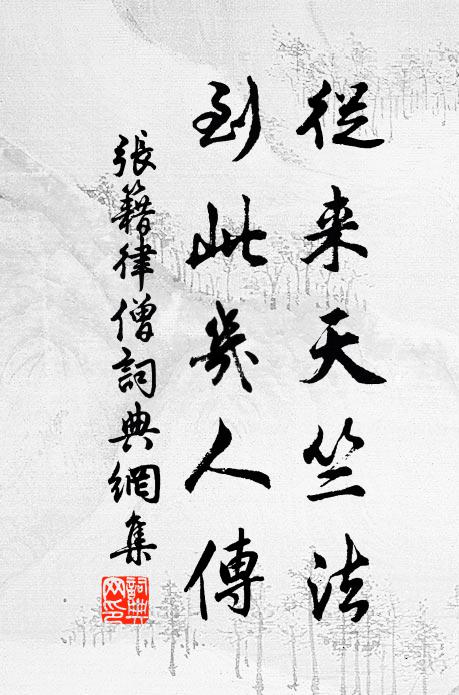 從来天竺法
到此幾人傳
張籍律僧詞典網集
詞典網印